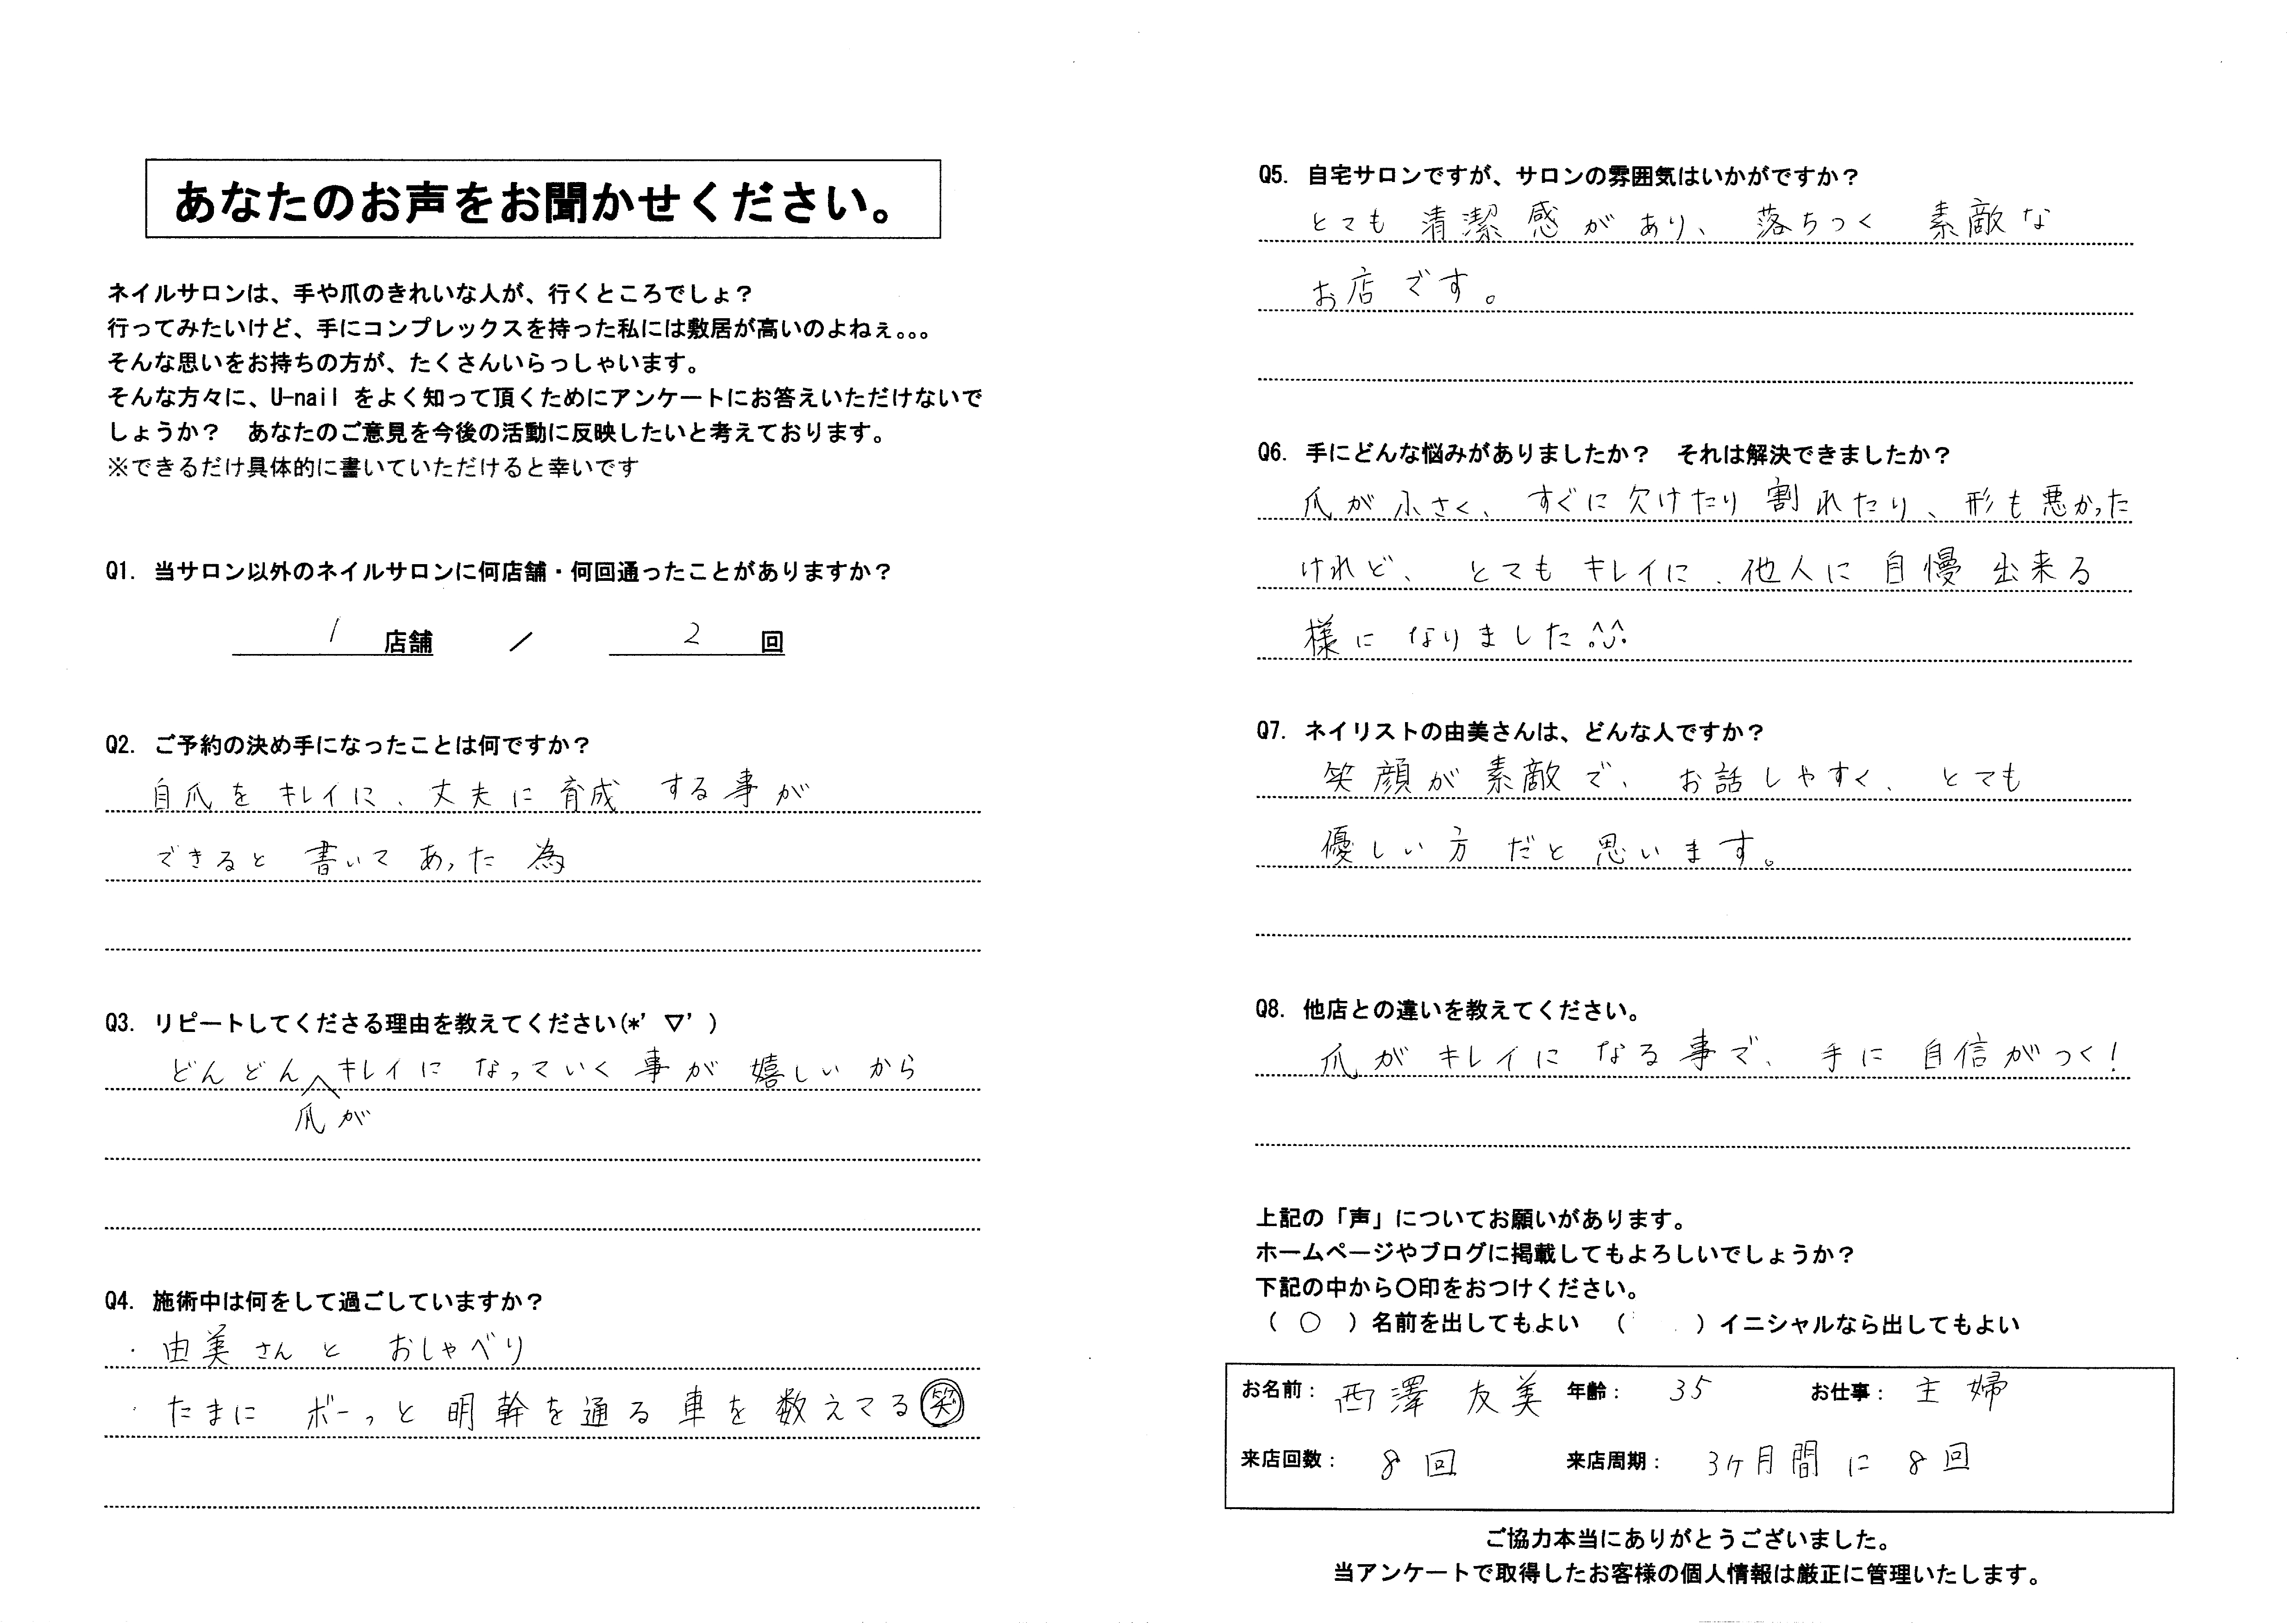 あなたのお声をお聞かせください。
ネイルサロンは、手や爪のきれいな人が、行くところでしょ？
行ってみたいけど、手にコンプレックスを持った私には敷居が高いのよねぇ。。。
そんな思いをお持ちの方が、たくさんいらっしゃいます。
そんな方々に、U-nail をよく知って頂くためにアンケートにお答えいただけないで
しょうか？　あなたのご意見を今後の活動に反映したいと考えております。
※できるだけ具体的に書いていただけると幸いです
Q1. 当サロン以外のネイルサロンに何店舗・何回通ったことがありますか？
1 店舗 ／ 2 回
Q2. ご予約の決め手になったことは何ですか？
自爪を キレイに、丈夫に育成 する事が
できると 書いて あった 為
Q3. リピートしてくださる理由を教えてください(*’▽’)
どんどん キレイに なっていく 事が 嬉しいから
爪が
Q4. 施術中は何をして過ごしていますか？
・由美さんと おしゃべり
・たまに ボーっと 明幹を通る車を数えてる㊗笑
Q5. 自宅サロンですが、サロンの雰囲気はいかがですか？
とても 清潔感があり、落ちつく 素敵な
お店です。
Q6. 手にどんな悩みがありましたか？　それは解決できましたか？
爪が小さく、すぐに欠けたり割れたり、形も悪かった
けれど、とてもキレイに、他人に自慢出来る
様に なりました^^
Q7. ネイリストの由美さんは、どんな人ですか？
笑顔が素敵で、お話しやすく、とても
優しい方だと思います。
Q8. 他店との違いを教えてください。
爪がキレイになる事で、手に自信がつく！
上記の「声」についてお願いがあります。
ホームページやブログに掲載してもよろしいでしょうか？
下記の中から〇印をおつけください。
（ ○ ）名前を出してもよい　（　　）イニシャルなら出してもよい
お名前： 西澤 友美 年齢： 35 お仕事： 主婦
来店回数： 8回 来店周期： 3ヶ月間に8回
ご協力本当にありがとうございました。
当アンケートで取得したお客様の個人情報は厳正に管理いたします。